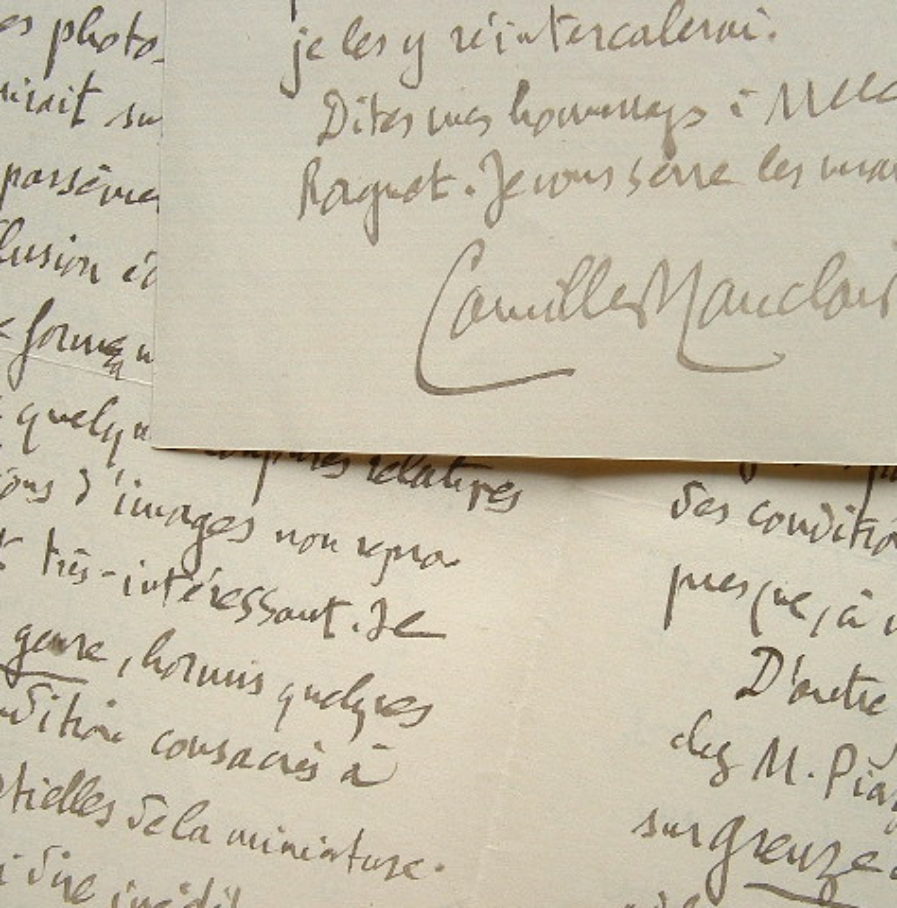 je les y réintercalerai.
Dites mes hommages à Mlle
Roignot. Je vous serre les mai
Camille Mauclair
es photo-
sait su
lusion
forme
quelq
relatives
d'images non repro-
très-intéressant. Je
genre, hormis quelques
dition consacrés à
tielles de la miniature.
dire inédit
des conditio
presque, à
D'autre
chez M. Piaz
sur Greuze